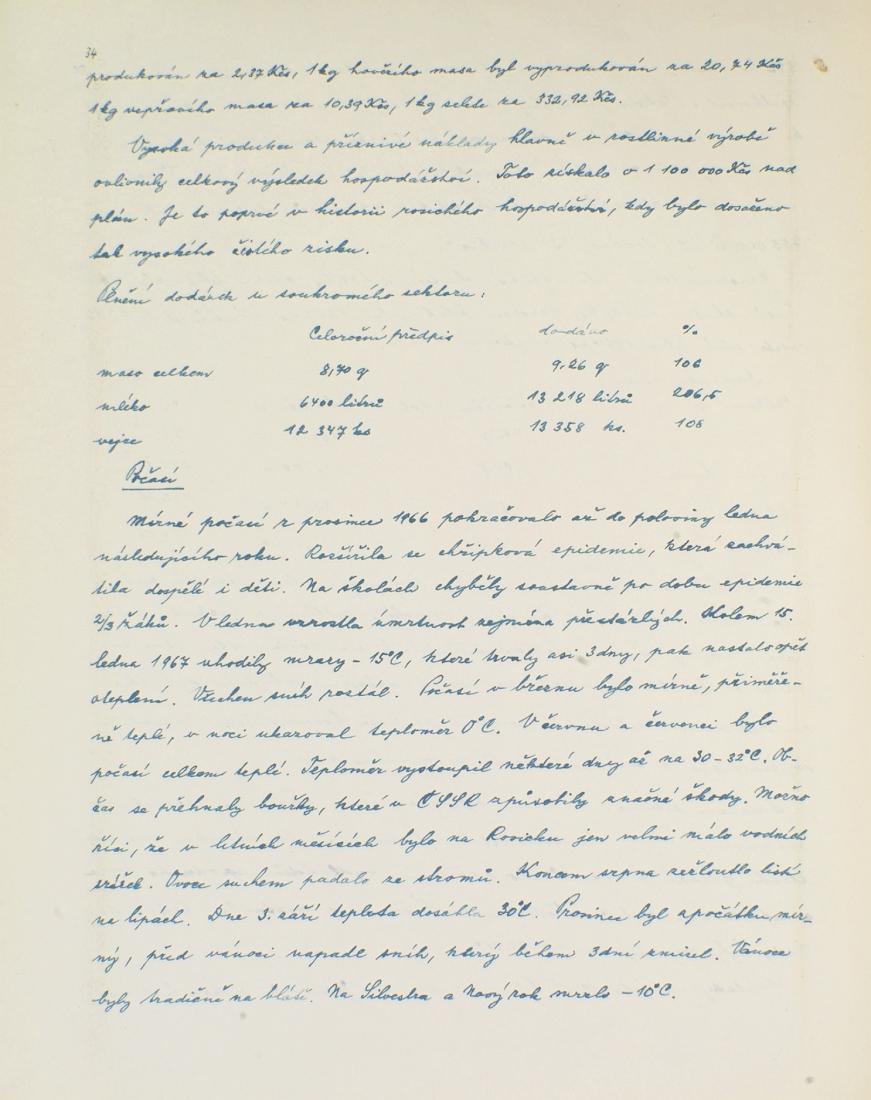 34
produkován za 2,37 Kčs, 1 kg hovězího masa byl vyprodukován za 20,74 Kčs
1 kg vepřového masa za 10,39 Kčs, 1 kg selete za 332,92 Kčs.
Vysoká produkce a příznivé náklady hlavně v rostlinné výrobě
ovlivnily celkový výsledek hospodářství. Toto získalo o 1 100 000 Kčs nad
plán. Je to poprvé v historii rosického hospodářství, kdy bylo dosaženo
tak vysokého čistého zisku.
Plnění dodávek u soukromého sektoru:
Celoroční předpis dodáno %
maso celkem 8,70 q 9,26 q 106
mléko 6400 litrů 13 218 litrů 206,5
vejce 12 347 ks 13 358 ks. 108
Počasí
Mírné počasí z prosince 1966 pokračovalo až do poloviny ledna
následujícího roku. Rozšířila se chřipková epidemie, která zachvá-
tila dospělé i děti. Na školách chyběly soustavně po dobu epidemie
2/3 žáků. V lednu vzrostla úmrtnost zejména přestárlých. Kolem 15.
ledna 1967 uhodily mrazy -15°C, které trvaly asi 3 dny, pak nastalo opět
oteplení. Všechen sníh roztál. Počasí v březnu bylo mírné, přiměře-
ně teplé, v noci ukazoval teploměr 0°C. V červnu a červenci bylo
počasí celkem teplé. Teploměr vystoupil některé dny až na 30-32°C. Ob-
čas se přehnaly bouřky, které v ČSSR způsobily značné škody. Možno
říci, že v letních měsících bylo na Rosicku jen velmi málo vodních
srážek. Ovoce suchem padalo ze stromů. Koncem srpna zežloutlo listí
na lipách. Dne 3. září teplota dosáhla 30°C. Prosinec byl zpočátku mír-
ný, před vánoci napadl sníh, který během 3 dní zmizel. Vánoce
byly tradičně na blátě. Na Silvestra a Nový rok mrzlo -10°C.